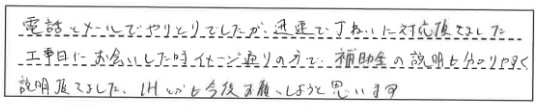 電話とメールでやりとりでしたが、迅速で丁ねいに対応頂きました
工事日にお会いした時イメージ通りの方で、補助金の説明も分かりやすく
説明頂きました、IHとかも今後お願いしようと思います